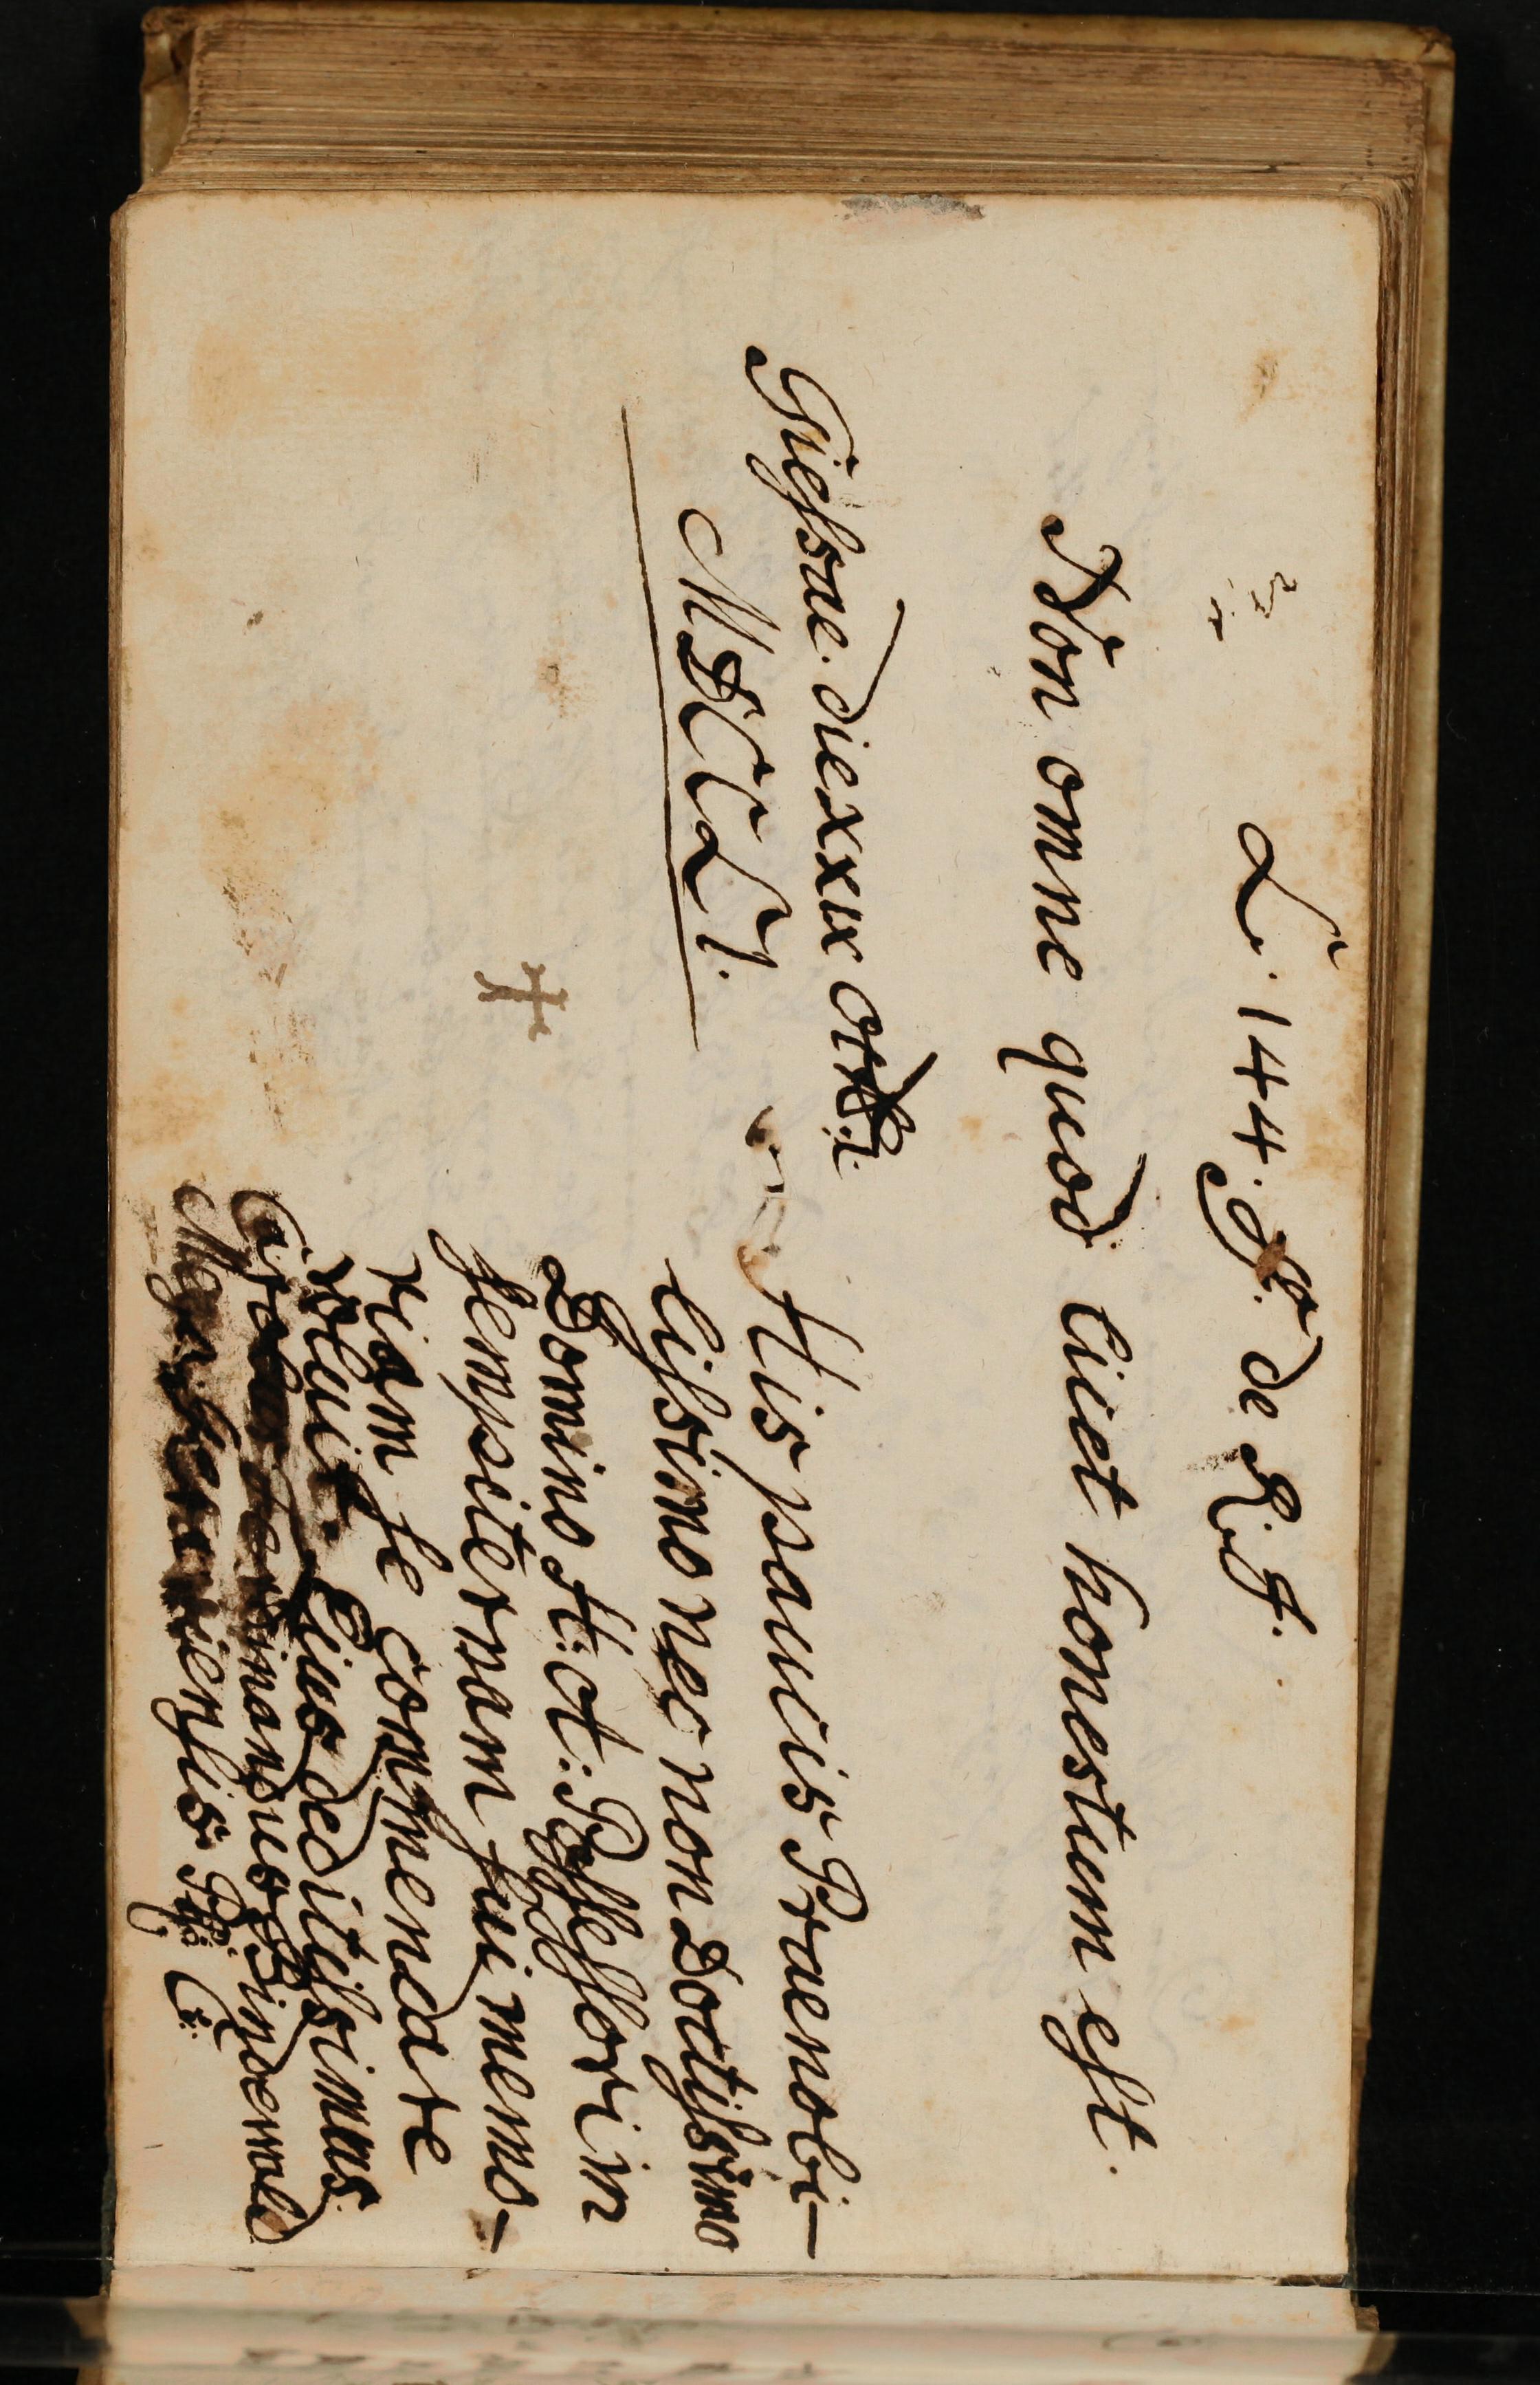 L. 144. ff. de R. J.
Non omne quod licet honestum est.
Giessae. die xxıx Octbr:
MDCCLI.
His paucis Praenobi-
lissimo nec non Doctissimo
Domino H: A: Possessori in
sempiternam sui memo-
riam se Commendare
voluit. Eius deditissimus
Ferdinandus Bindewald